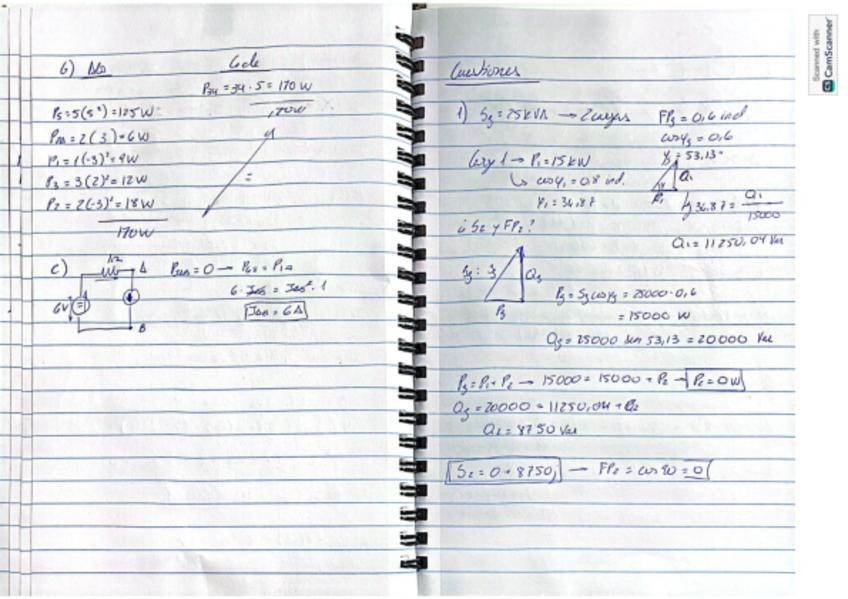 b) Abs Cede
P34 = 34 · 5 = 170 W
170W
P5 = 5(5²) = 125 W
= 2(3) = 6 W
P1 = 1(-3)² = 9 W
P3 = 3(2)² = 12 W
P2 = 2(-3)² = 18 W
170W
=
c) 1Ω A
6V
B
= 0 → P6V = P1Ω
6 · = ² · 1
= 6 A
Cuestiones
1) Sg = 25 kVA → 2 cargas FPg = 0,6 ind
cosφg = 0,6
φg = 53,13°
Carga 1 → P1 = 15 kW
↳ cosφ1 = 0,8 ind.
φ1 = 36,87
Q1
P1
tg 36,87 = Q1 / 15000
Q1 = 11250,04 Var
¿S2 y FP2?
Qg
Pg
Pg = Sg cosφg = 25000 · 0,6
= 15000 W
Qg = 25000 sen 53,13 = 20000 Var
Pg = P1 + P2 → 15000 = 15000 + P2 → P2 = 0 W
Qg = 20000 = 11250,04 + Q2
Q2 = 8750 Var
S2 = 0 + 8750j → FP2 = cos 90 = 0
Scanned with
CamScanner